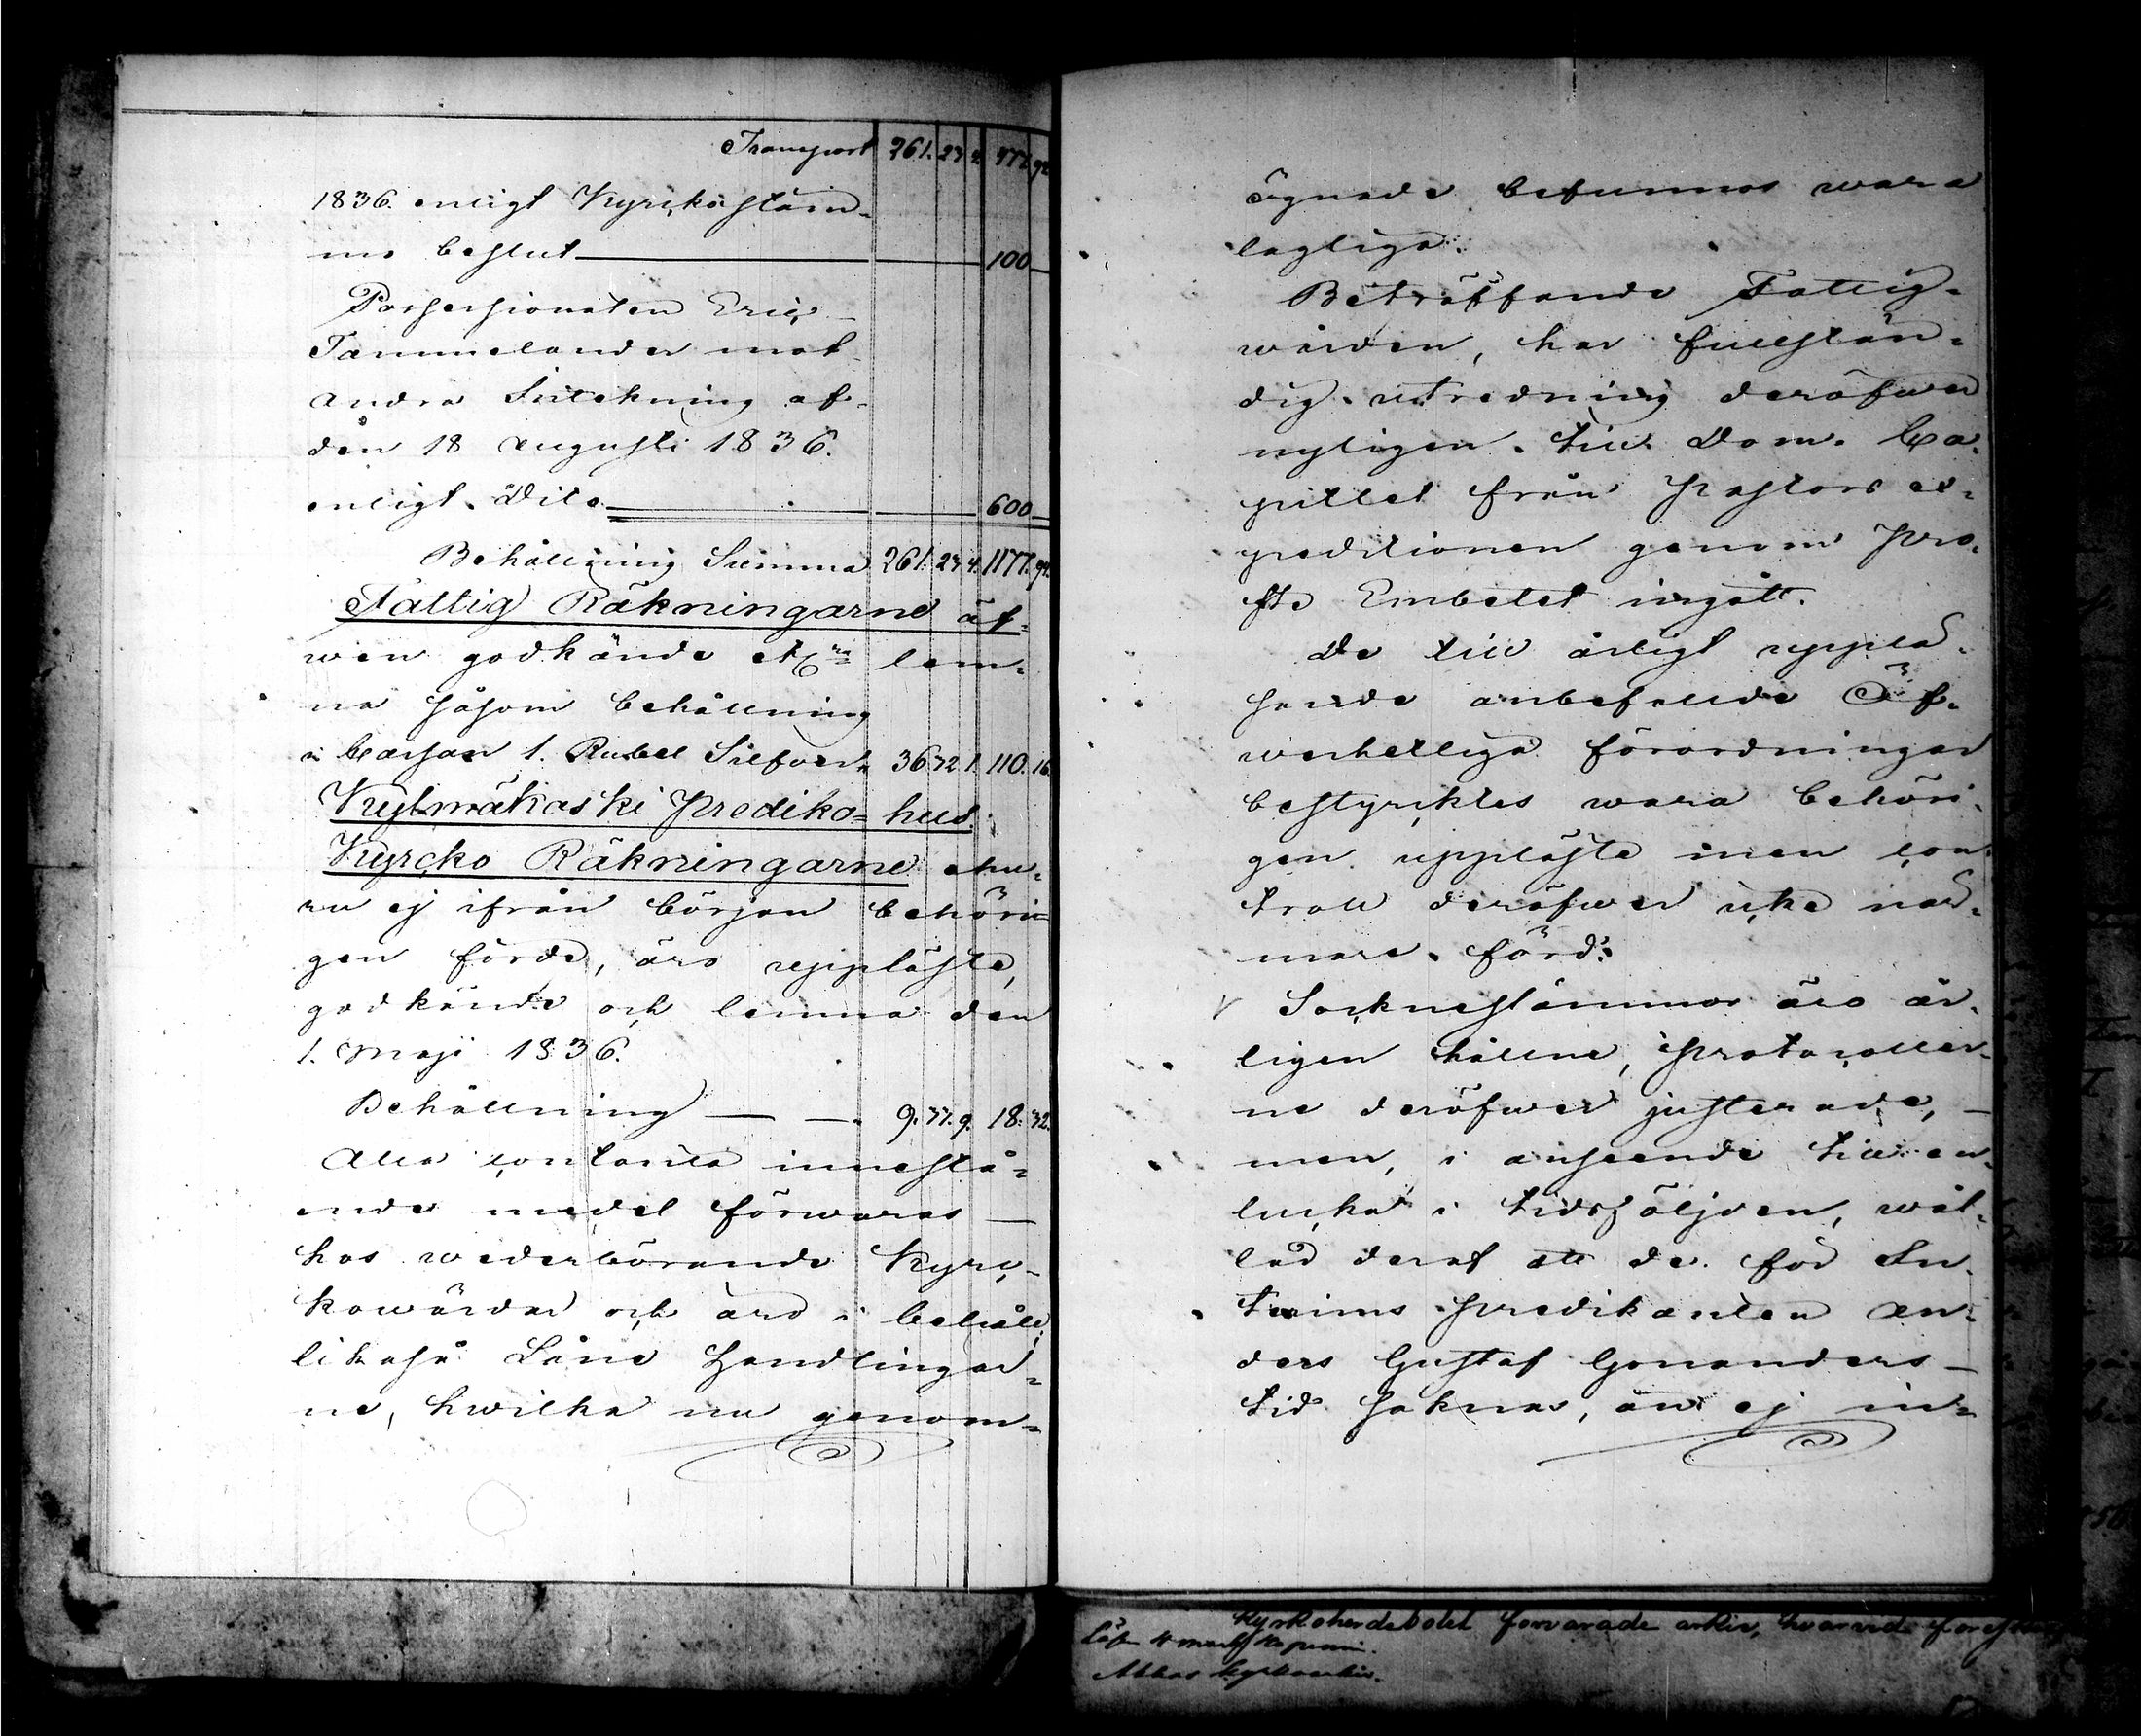 Transport 261. 23 4. 477. 92
1836. enligt Kyrckostäm-
mo beslut 100
Possessionaten Eric
Tammelander mot
andra Inteckning af
den 18 augusti 1836.
enligt Dito 600
Behållning Summa 261. 23 4. 1177. 92.
Fattig Räkningarne äf-
wen godkände lem-
na såsom behållning
i Cassan 1. Rubel Silfver 36. 32 1. 110. 16
Kylmäkoski Prediko-hus
Kyrcko Räkningarne ehu-
ru ej ifrån början behöri
gen förde, äro uppläste,
godkände och lemna den
1. Maji 1836.
Behållning 9. 37. 9. 18. 32.
Alla contanta innestå-
ende medel förwaras
hos wederbörande Kyrc-
kowärdar och äro i behåll,
likaså Låne Handlingar-
ne, hwilka nu genom-
ögnade befunnos wara
lagliga.
Beträffande Fattig-
wården, har fullstän-
dig utredning deröfwer
nyligen till Dom Ca-
pitlet från Pastors ex-
peditionen genom Pro-
ste Embetet ingått.
De till årligt upplä-
sande anbefallde Öf-
werhetliga förordningar
bestyrcktes wara behöri-
gen uppläste men con-
troll deröfwer icke när-
mare förd.
Socknestämmor äro år-
ligen hållne, Protocoller-
ne deröfwer justerade,
men, i anseende till en
lucka i tidsföljden, wål-
lad deraf att de för In-
terims Predikanten An-
ders Gustaf Gonanders
tid saknas, än ej in-
Kyrkoherdebolet förvarade arkiv, hvarvid